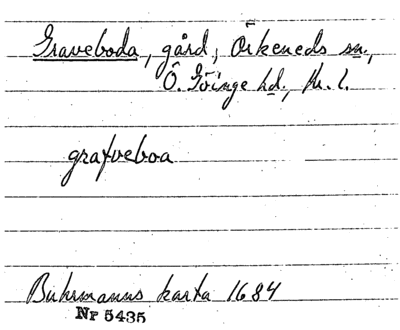 Graveboda, gård, Örkeneds sn.,
Ö. Göinge hd., Kr. l.
grafveboa
Buhrmanns karta 1684
Nr 5435